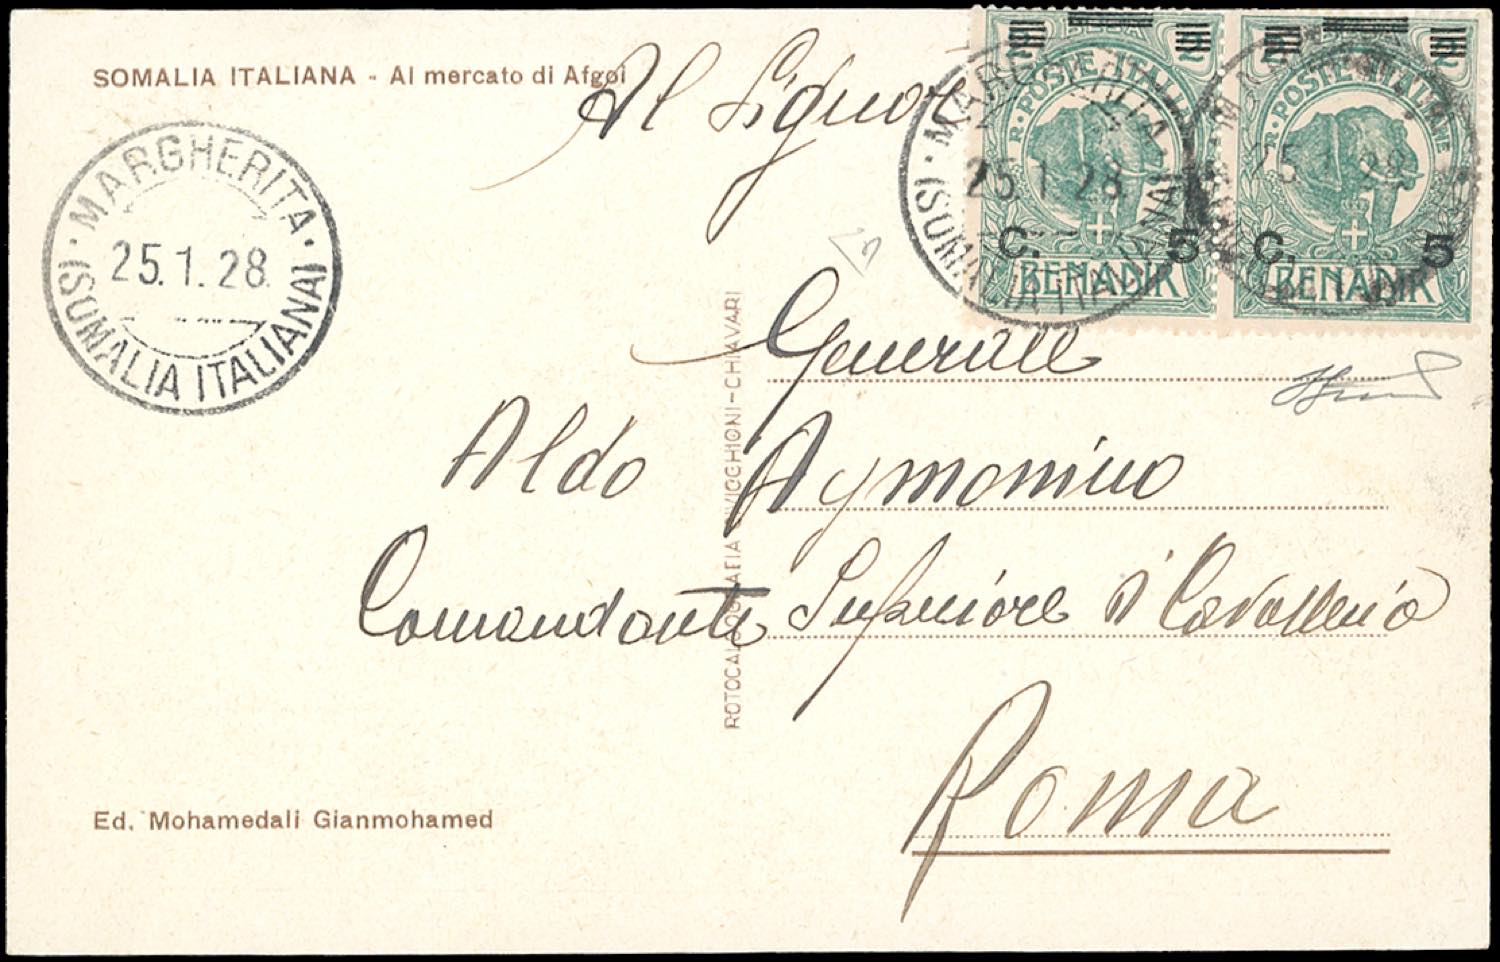 SOMALIA ITALIANA - Al mercato di Afgoi
Al Signor
MARGHERITA
25.1.28
(SOMALIA ITALIANA)
R. POSTE ITALIANE
C. 5
BENADIR
R. POSTE ITALIANE
C. 5
BENADIR
MARGHERITA
25.1.28
(SOMALIA ITALIANA)
25.1.28
Generale
Aldo Aymonino
Comandante Superiore d' Cavalleria
Roma
ROTOCALCOGRAFIA CHIAVARI
Ed. Mohamedali Gianmohamed